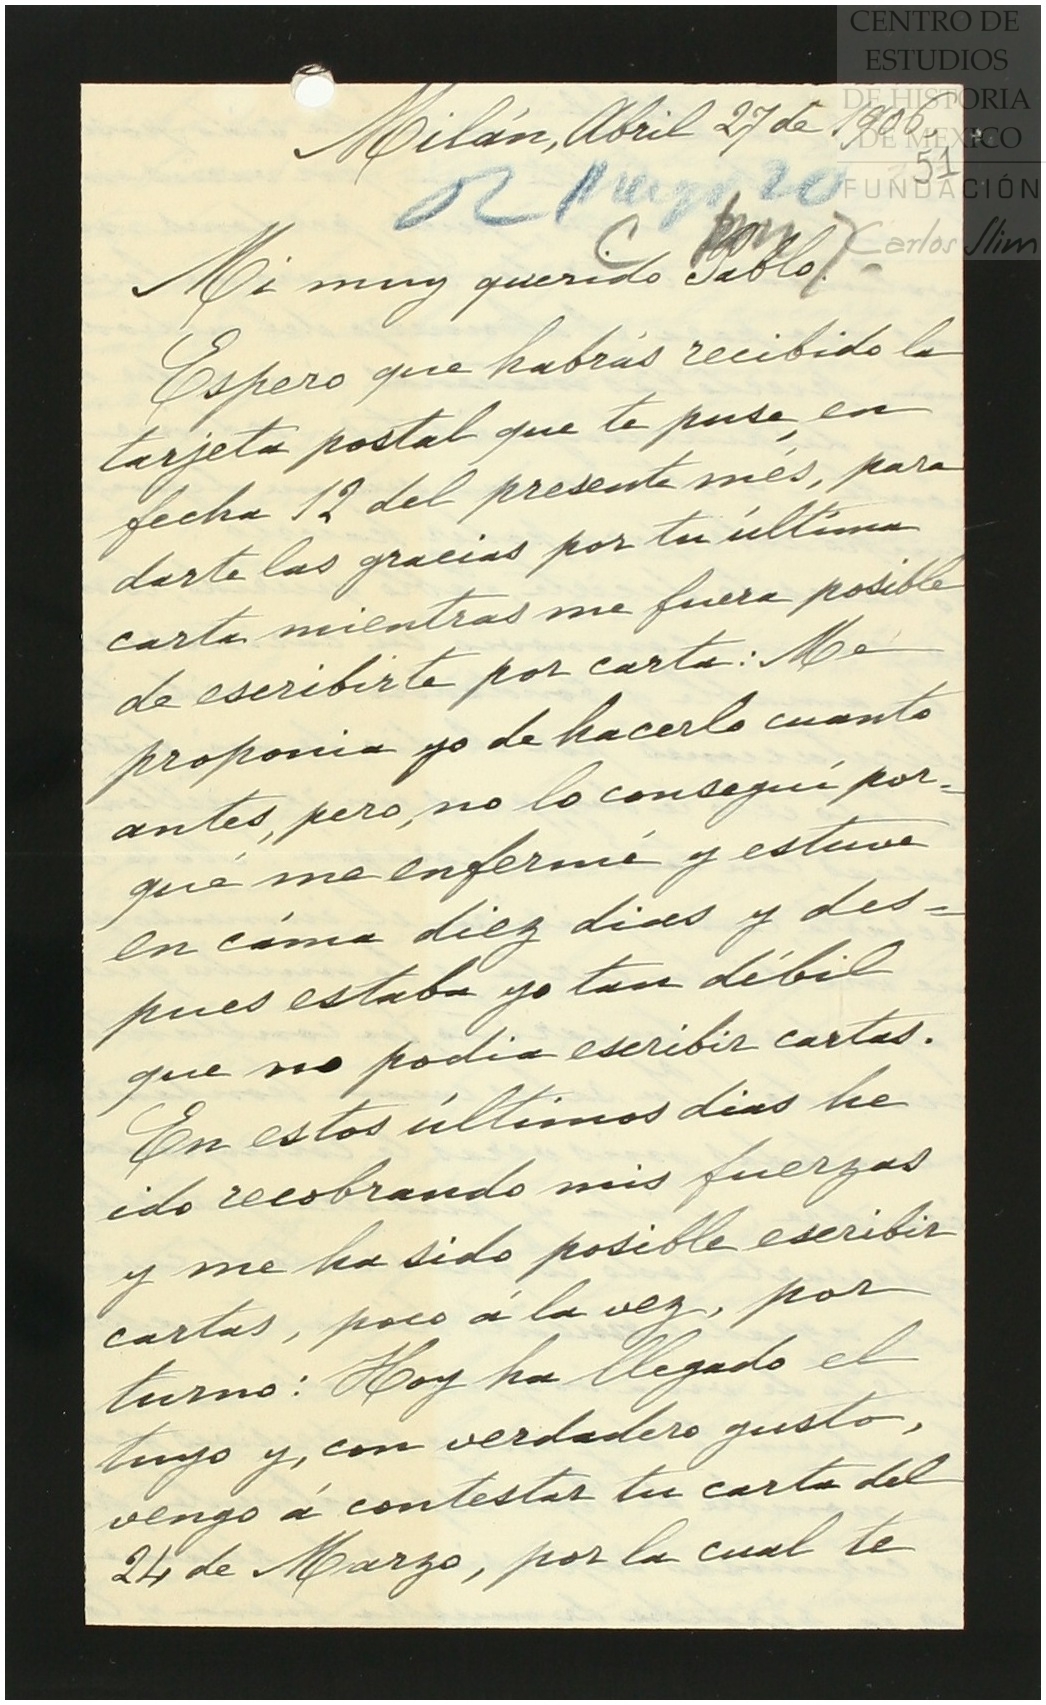 CENTRO DE
ESTUDIOS
DE HISTORIA
DE MEXICO
FUNDACIÓN
Carlos Slim
Milán, Abril 27 de 1906.
51
Mi muy querido Pablo:
Espero que habrás recibido la
tarjeta postal que te puse, en
fecha 12 del presente més, para
darte las gracias por tu última
carta mientras me fuera posible
de escribirte por carta: Me
proponia yo de hacerlo cuanto
antes, pero, no lo conseguí por=
qué me enfermé y estuve
en cáma diez dias y des=
pues estaba yo tan débil
que no podia escribir cartas.
En estos últimos dias he
ido recobrando mis fuerzas
y me ha sido posible escribir
cartas, poco á la vez, por
turno: Hoy ha llegado el
tuyo y, con verdadero gusto,
vengo á contestar tu carta del
24 de Marzo, por la cual te